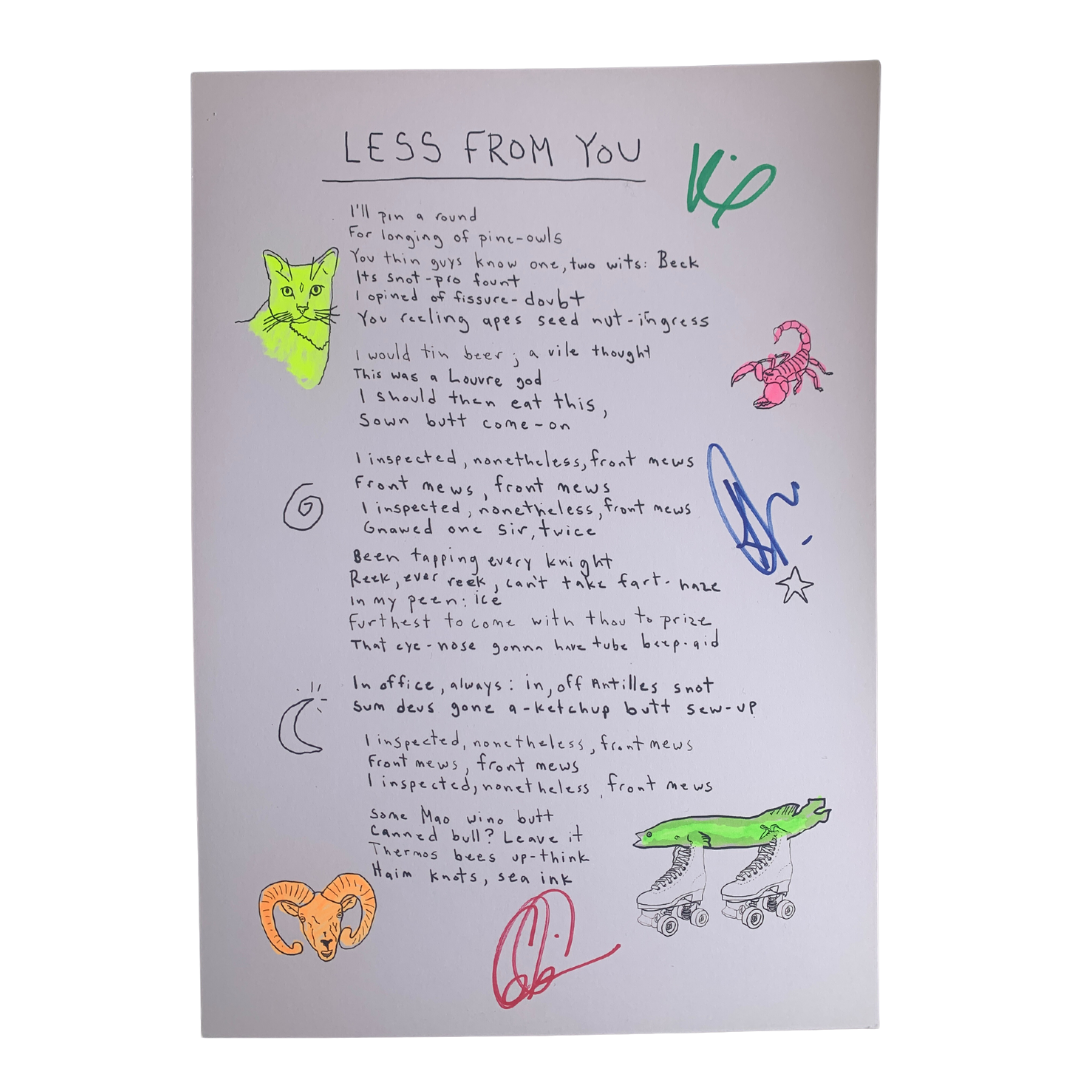 LESS FROM YOU
I'll pin a round
For longing of pine-owls
You thin guys know one, two wits: Beck
Its snot-pro fount
I opined of fissure-doubt
You reeling apes seed nut-ingress
I would tin beer; a vile thought
This was a Louvre god
I should then eat this,
Sown butt come-on
I inspected, nonetheless, front mews
Front mews, front mews
I inspected, nonetheless, front mews
Gnawed one sir, twice
Been tapping every knight
Reek, ever reek, can't take fart-haze
In my peen: ice
Furthest to come with thou to prize
That eye-nose gonna have tube beep-aid
In office, always: in, off Antilles snot
Sum deus gone a-ketchup butt sew-up
I inspected, nonetheless, front mews
Front mews, front mews
I inspected, nonetheless, front mews
Some Mao wino butt
Canned bull? Leave it
Thermos bees up-think
Haim knots, sea ink